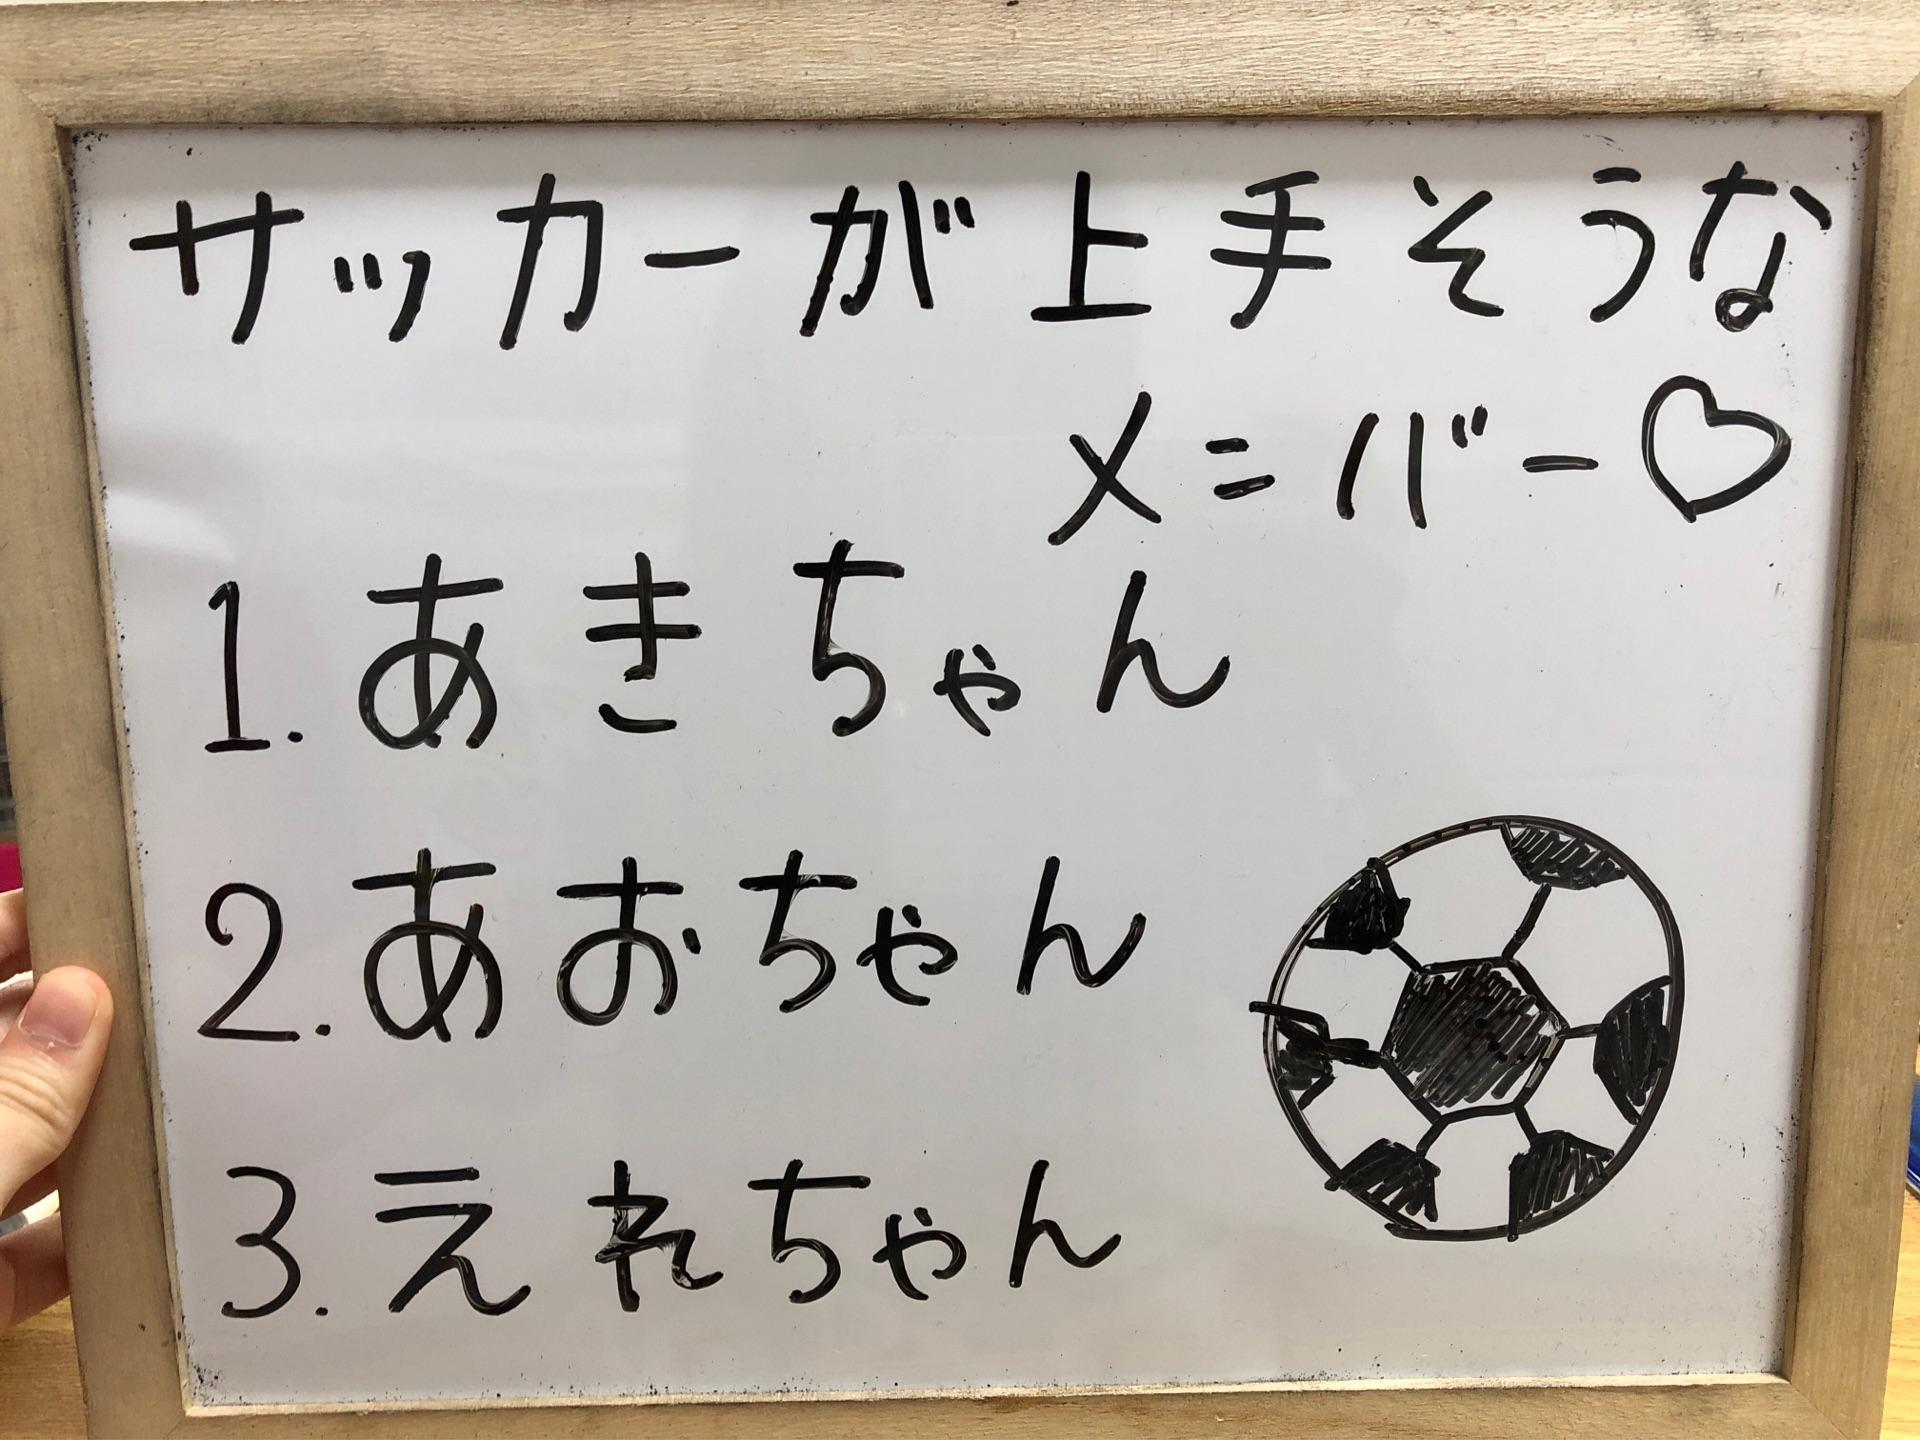 サッカーが上手そうな
メンバー♡
1. あきちゃん
2. あおちゃん
3. えれちゃん